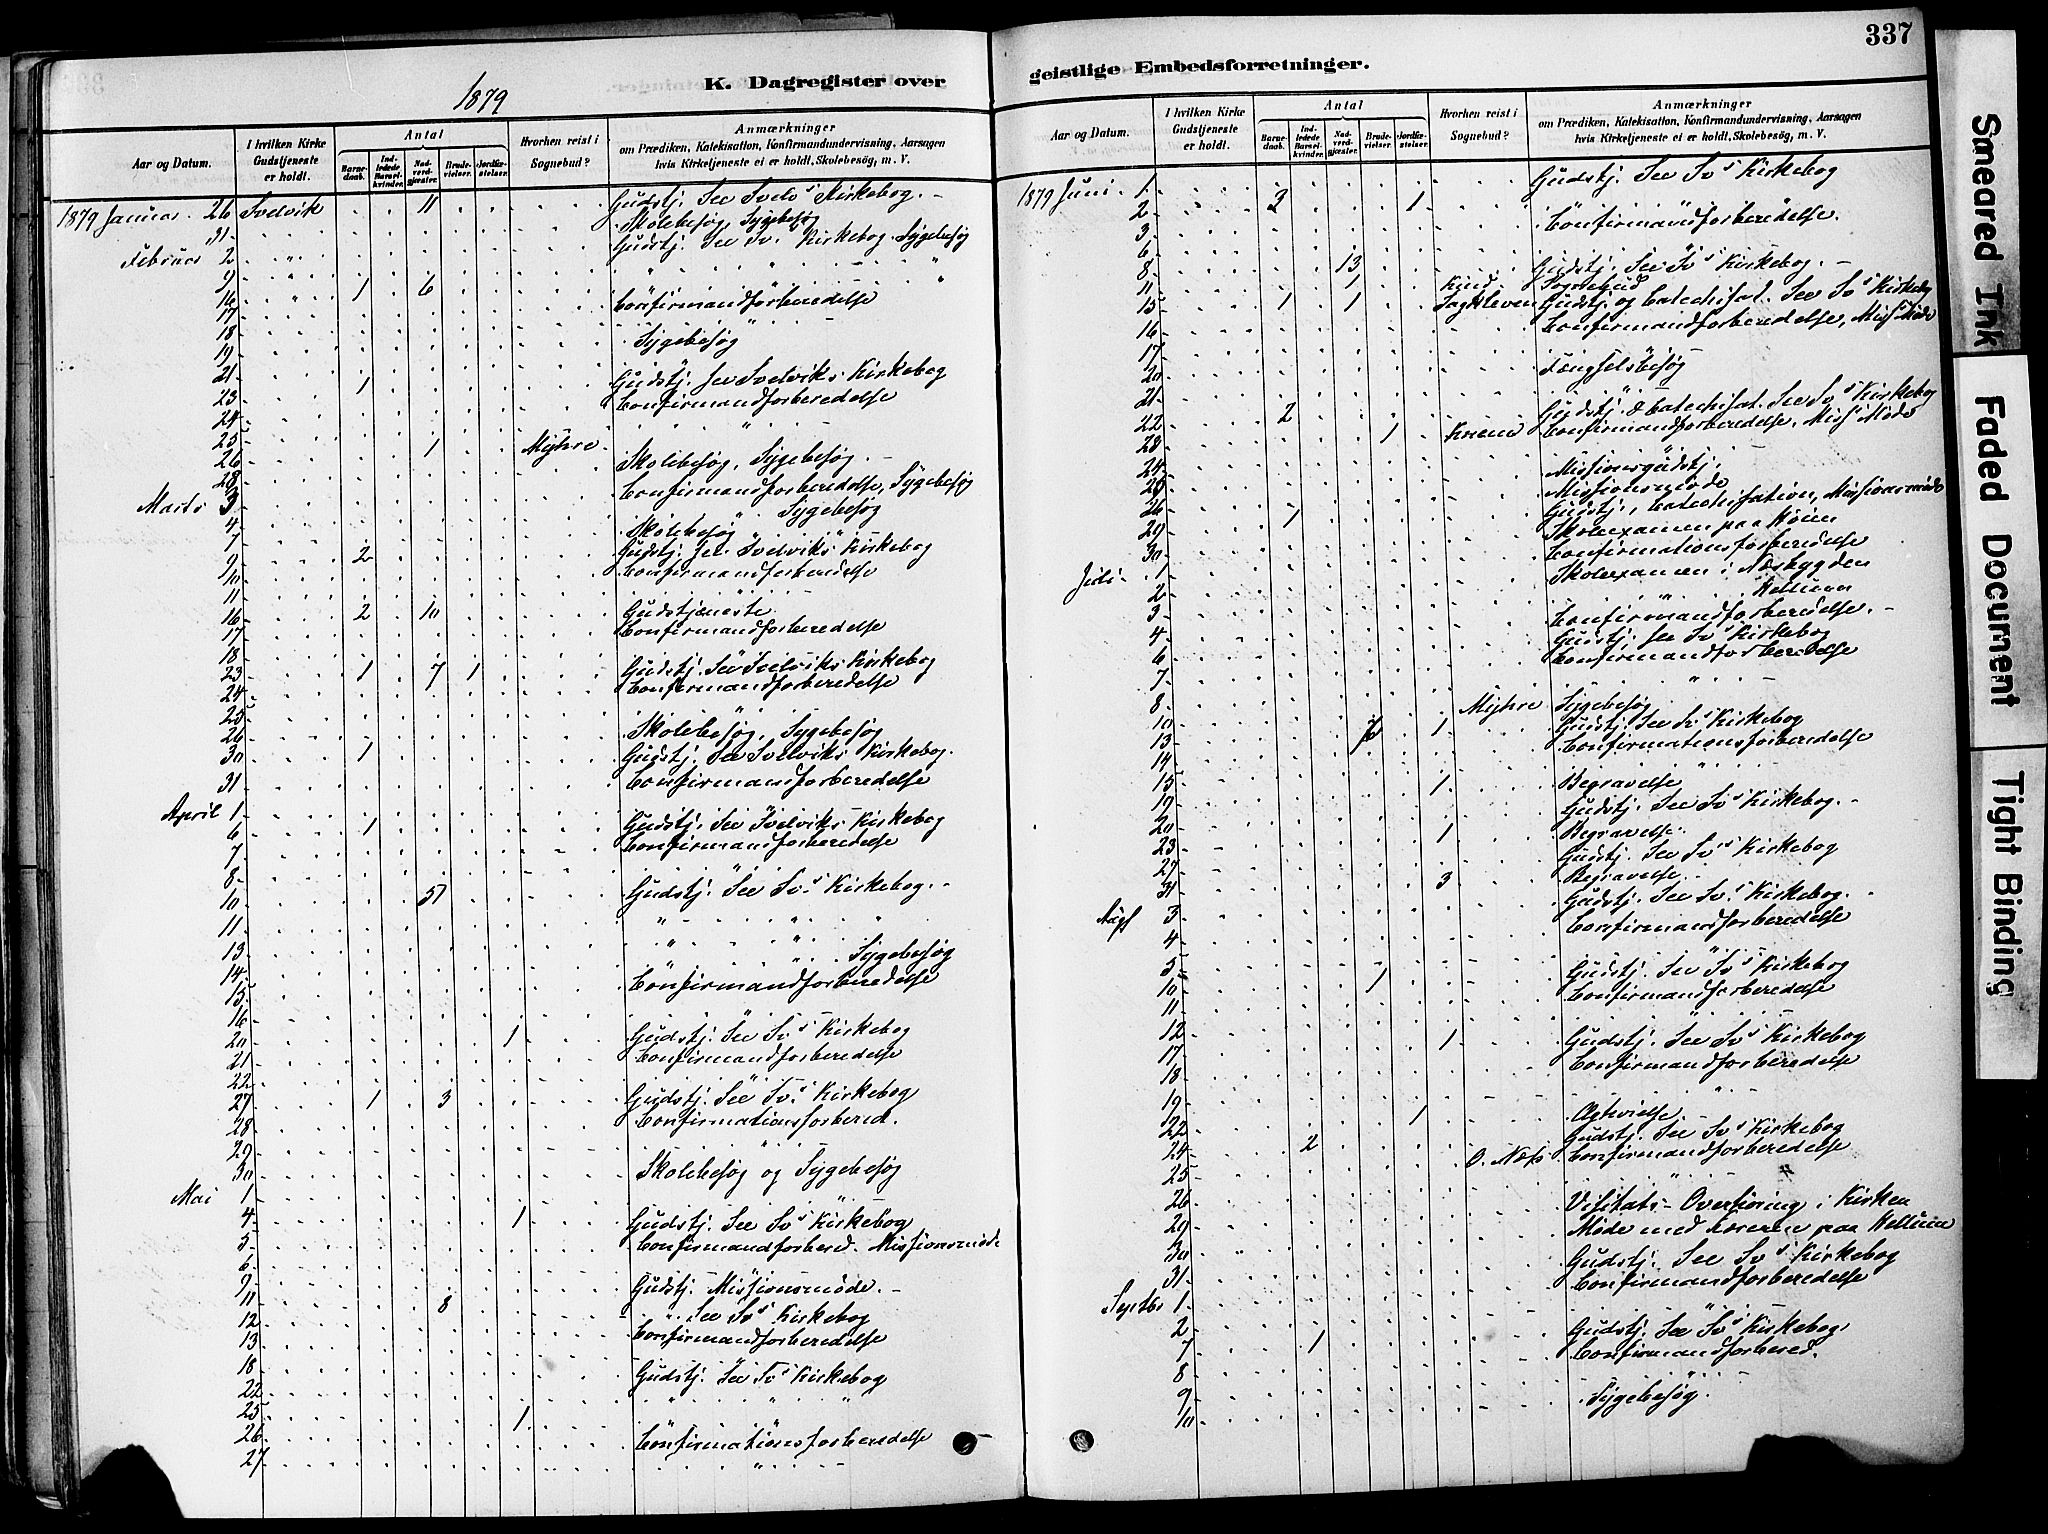 337
K. Dagregister over geistlige Embedsforretninger.
1879
Aar og Datum.
I hvilken Kirke Gudstjeneste er holdt.
Antal
Barnedaab.
Indledede Barselkvinder.
Nadverdgjæster.
Brudevielser.
Jordfæstelser.
Hvorhen reist i Sognebud?
Anmærkninger
om Prædiken, Katekisation, Konfirmandundervisning, Aarsagen
hvis Kirketjeneste ei er holdt, Skolebesög, m. V.
1879 Januar 26 Svelvik 11 Gudstj. See Svelvs Kirkebog.
31 Skolebesøg, Sygebesøg
Februar 2 Gudstj. See Sv. Kirkebog. Sygebesøg
9 1 6 " " "
16
17 Confirmandforberedelse
18 "
19 Sygebesøg
21
23 1 Gudstj. See Svelviks Kirkebog
24 Confirmandforberedelse
25 "
26 1 Myhre
28 Skolebesøg, Sygebesøg.
Marts 3 Confirmandforberedelse, Sygebesøg
4 " Sygebesøg
7 Skolebesøg
9 2 Gudstj. See Svelviks Kirkebog
10 Confirmandforberedelse
11 "
16 2 10 Gudstjeneste
17 Confirmandforberedelse
18 "
23 1 7 1 Gudstj. See Svelviks Kirkebog
24 Confirmandforberedelse
25 "
26 Skolebesøg, Sygebesøg
30 1 Gudstj. See Svelviks Kirkebog.
31 Confirmandforberedelse
April 1 "
6 1 Gudstj. See Svelviks Kirkebog
7 Confirmandforberedelse
8 "
10 51 Gudstj. See Sv.s Kirkebog.
11 " " "
13 " " " Sygebesøg
14
15 Confirmandforberedelse
16
20 1 Gudstj. See Sv.s Kirkebog
21 Confirmandforberedelse
22 "
27 1 3 Gudstj. See Sv.s Kirkebog
28 Confirmationsforbered.
29 "
30 Skolebesøg og Sygebesøg
Mai 1
4 1 Gudstj. See Sv.s Kirkebog
5 Confirmandforbered. Missionsmøde
6 "
9 Gudstj. Missionsmøde.
11 8 " See Sv.s Kirkebog
12 Confirmandforberedelse
13 "
18 Gudstj. See Sv.s Kirkebog
22 " " " "
25 1
26 Confirmationsforberedelse
27 "
Aar og Datum.
I hvilken Kirke Gudstjeneste er holdt.
Antal
Barnedaab.
Indledede Barselkvinder.
Nadverdgjæster.
Brudevielser.
Jordfæstelser.
Hvorhen reist i Sognebud?
Anmærkninger
om Prædiken, Katekisation, Konfirmandundervisning, Aarsagen
hvis Kirketjeneste ei er holdt, Skolebesög, m. V.
1879 Juni 1 3 1 Gudstj. See Sv.s Kirkebog
2 Confirmandforberedelse.
3 "
6
8 13 Gudstj. See Sv.s Kirkebog.
11 1 Sognebud
15 1 1 Gudstj. og Catechisat. See Sv.s Kirkebog
16 Confirmandforberedelse, Miss. Møde
17 "
20 Fængselsbesøg
21 "
22 2 Gudstj. & Catechisat. See Sv.s Kirkebog
23 1 Confirmandforberedelse, Miss. Møde
24 "
25 Missionsgudstj.
26 Missionsmøde
29 1 Gudstj., Catechisation, Missionsmøde
30 Skoleexamen paa
Juli 1 Confirmationsforberedelse
2 Skoleexamen i Nesbygden
3 " "
4 Confirmandforberedelse.
6 Gudstj. See Sv.s Kirkebog
7 Confirmandforberedelse
8 "
10 Myhre Sygebesøg
13 1 Gudstj. See Sv.s Kirkebog
14 Confirmationsforberedelse
15 "
19 1 Begravelse
20 Gudstj. See Sv.s Kirkebog.
23 1 Begravelse.
27 Gudstj. See Sv.s Kirkebog
31 3 Begravelse.
Augst 3 Gudstj. See Sv.s Kirkebog.
4 Confirmandforberedelse
5 "
10 1 Gudstj. See Sv.s Kirkebog
11 Confirmandforberedelse
12
17 1 Gudstj. See Sv.s Kirkebog
18 Confirmandforberedelse
19 "
22 1
24 2 Gudstj. See Sv.s Kirkebog
25 Confirmandforberedelse
26 "
29 Visitats- i Kirken
30 Møde med paa
31 Gudstj. See Sv.s Kirkebog
Septbr 1 Confirmandforberedelse
2 "
7 1 Gudstj. See Sv.s Kirkebog
8 Confirmandforbered.
9 "
10 Sygebesøg.
Smeared Ink
Faded Document
Tight Binding